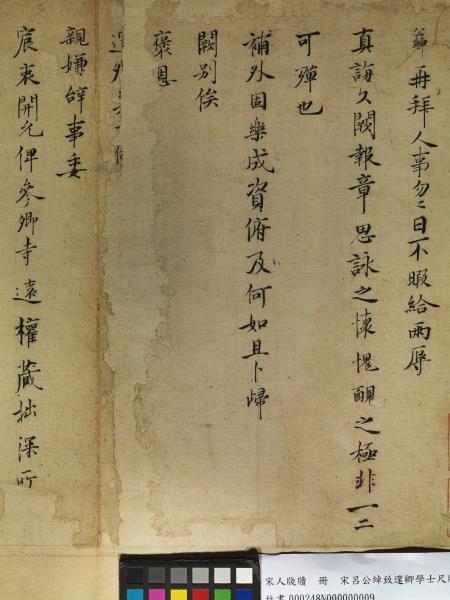 再拜人事勿〻日不暇給兩辱
真誨久闕報章思詠之懷愧靦之極非一二
可殫也
補外固樂成資俯及何如且卜歸
闕別俟
褒恩
親嫌辭事委
宸衷開允俾參卿寺遠權藏拙深所
宋人牋牘 冊 宋呂公綽致邃卿學士尺牘
故書 000248N000000009